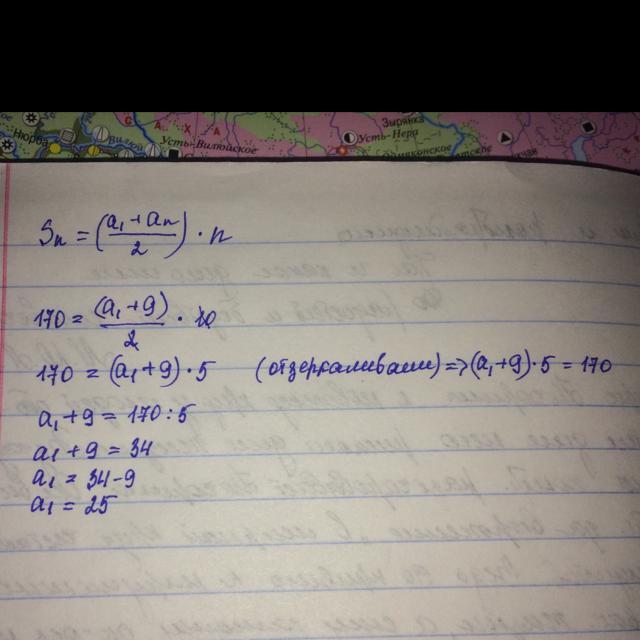 Нюрба
Вилюй
С А Х А
Усть-Вилюйское
Зырянка
Усть-Нера
Sₙ = (a₁ + aₙ / 2) · n
170 = (a₁ + 9) / 2 · 10
170 = (a₁ + 9) · 5 (отзеркаливаем) => (a₁ + 9) · 5 = 170
a₁ + 9 = 170 : 5
a₁ + 9 = 34
a₁ = 34 - 9
a₁ = 25